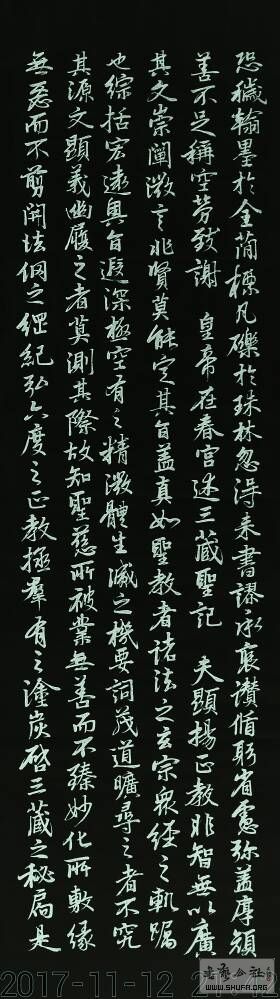 恐穢翰墨於金簡標瓦礫於珠林忽得來書謬承褒讚循躬省慮弥益厚顏
善不足稱空勞致謝　皇帝在春宮述三藏聖記　夫顯揚正教非智無以廣
其文崇闡微言非賢莫能定其旨蓋真如聖教者諸法之玄宗衆經之軌躅
也綜括宏遠奧旨遐深極空有之精微體生滅之機要詞茂道曠尋之者不究
其源文顯義幽履之者莫測其際故知聖慈所被業無善而不臻妙化所敷緣
無惡而不剪開法網之綱紀弘六度之正教拯羣有之塗炭啓三藏之秘扃是
WWW.SHUFA.ORG
2017-11-12